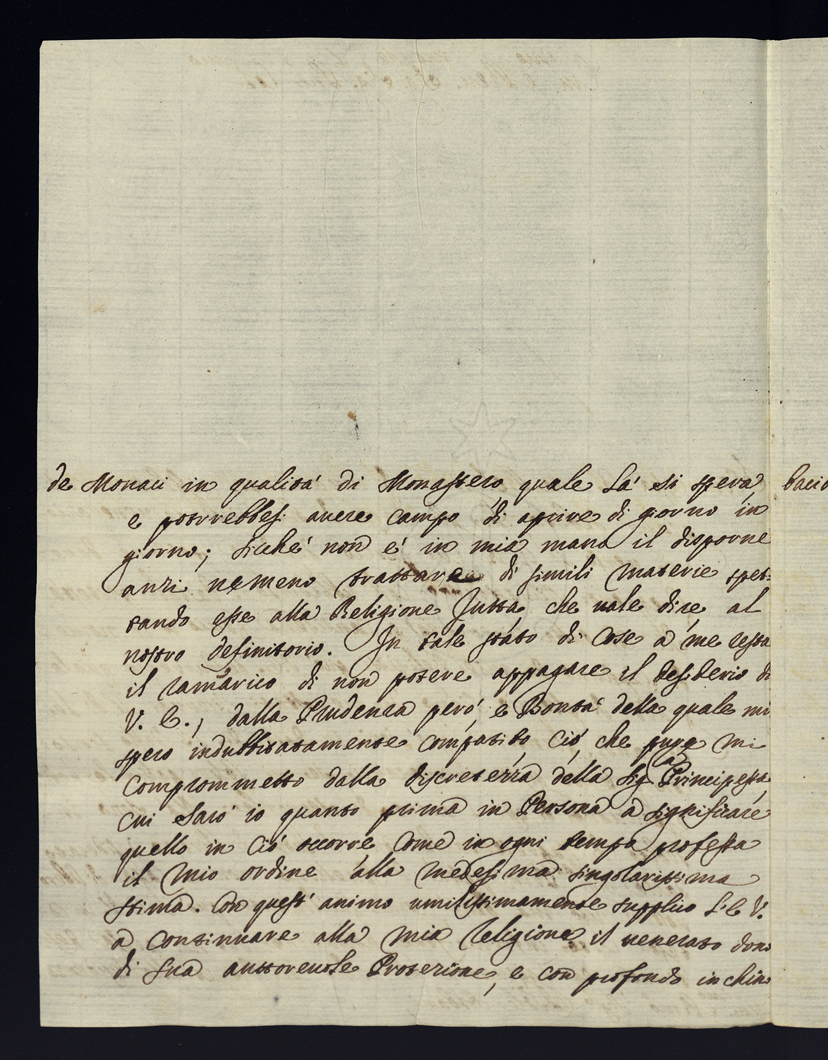 de Monaci in qualitá di Monastero quale lá si spera bacio
e potrebbesi avere campo di aprire di giorno in
giorno; sicché non é in mia mano il disporne
anzi nemeno trattare di simili materie spet:
tando esse alla Religione Tutta, che vale dire al
nostro definitorio. In tale stato di cose a me resta
il ramarico di non potere appagare il desiderio di
V. E., dalla Prudenza peró, e Bontá della quale mi
spero indubbitatamente compatito, ció, che pure mi
comprommetto dalla discretezza della Sig.a Principessa
cui saró io quanto prima in Persona a significare
quello in ció occorre come in ogni tempo professa
il mio ordine alla medesima singolarissima
stima. Con quest' animo umilissimamente supplico l'E. V.
a continuare alla mia Religione il venerato dono
di sua auttorevole Protezione, e con profondo inchino